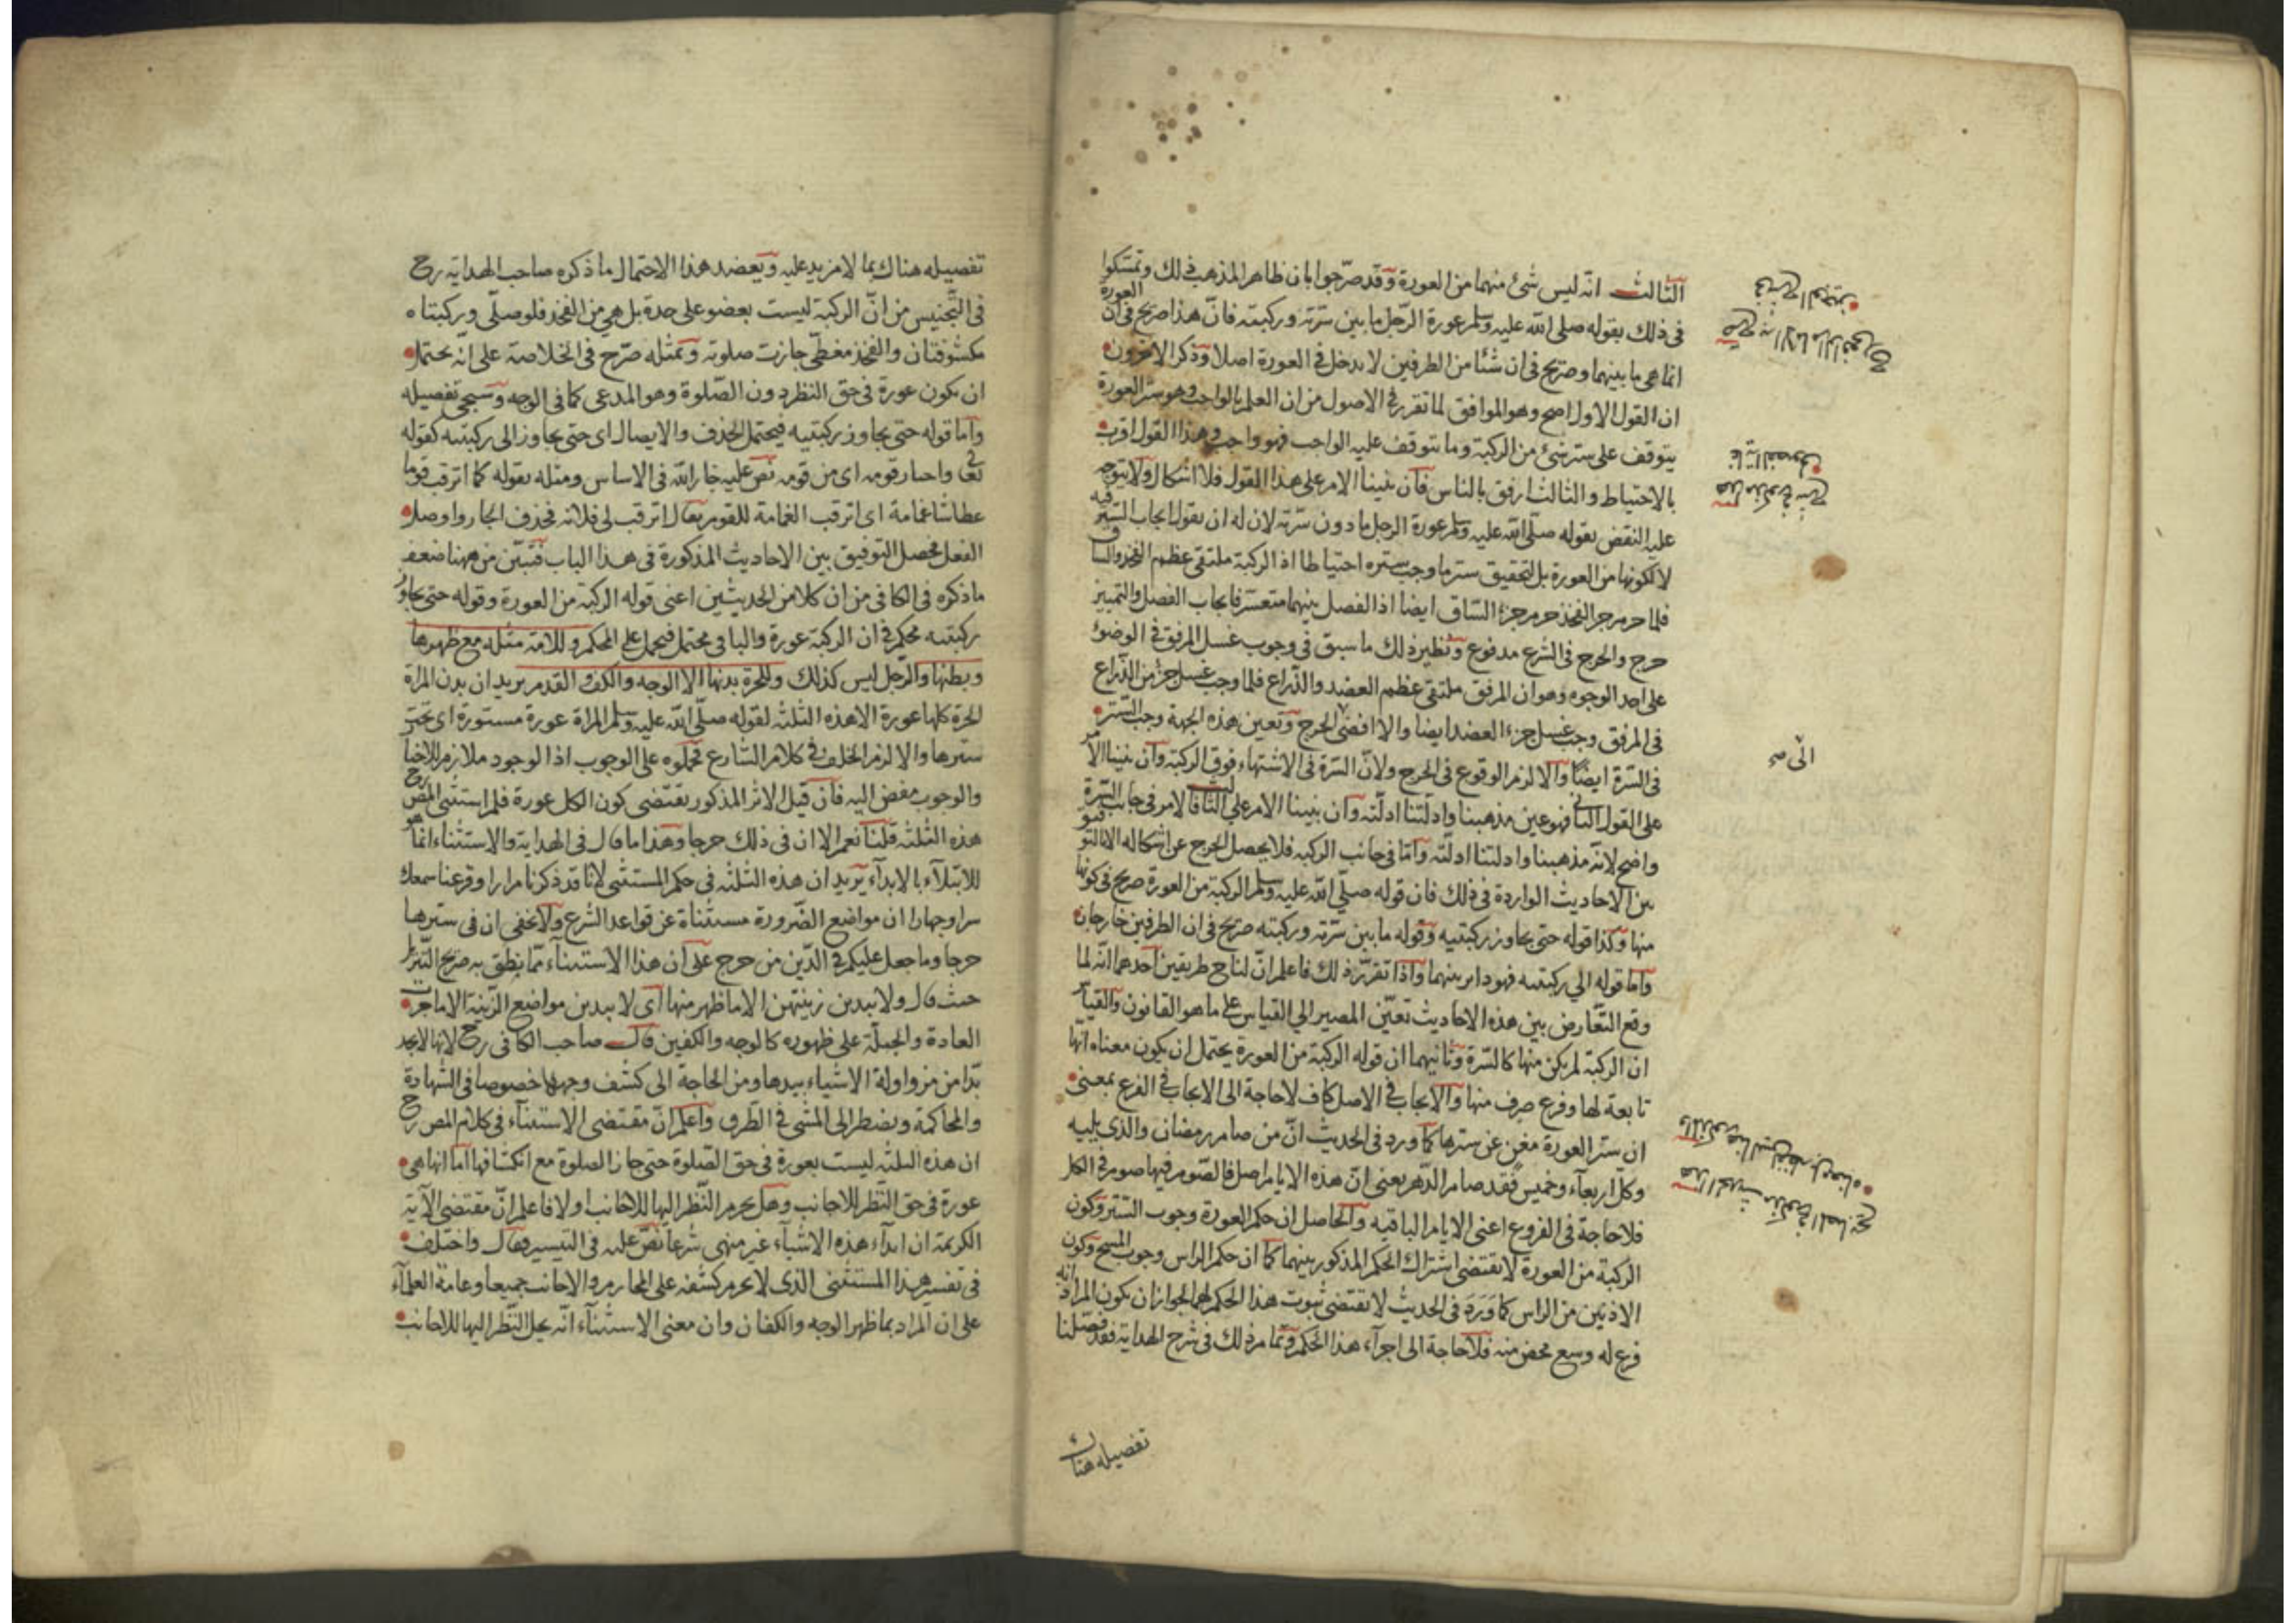 الثالث انه ليس شئ منهما من العورة وقد صرّحوا بان ظاهر المذهب ذلك وتمسّكوا
في ذلك بقوله صلى الله عليه وسلم عورة الرّجل ما بين سّرته وركبته فانّ هذا صريح في ان العورة
انما هي ما بينهما وصريح في ان شئا من الطرفين لا يدخل في العورة اصلا وذكر الآخرون
ان القول الاول اصح وهو الموافق لما تقرر في الاصول من ان العلم بالواجب وهو ستر العورة
يتوقف على ستر شئ من الركبة وما يتوقف عليه الواجب فهو واجب وهذا القول اقرب
بالاحتياط والثالث ارفق بالناس فان بنينا الامر على هذا القول فلا اشكال ولا يتوجه
عليه النقض بقوله صلّى الله عليه وسلم عورة الرجل ما دون سّرته لان له ان يقول ايجاب الستر فيه
لا لكونها من العورة بل لتحقيق ستر ما وجب ستره احتياطا اذ الركبة ملتقى عظم الفخذ والساق
فلما حرم جزء الفخذ حرم جزء السّاق ايضا اذ الفصل بينهما متعسّر فايجاب الفصل والتمييز
حرج والحرج في الشرع مدفوع ونظير ذلك ما سبق في وجوب غسل المرفق في الوضوء
على احد الوجوه وهو ان المرفق ملتقى عظم العضد والذّراع فلما وجب غسل جزء من الذّراع
في المرفق وجب غسل جزء العضد ايضا والا افضى الى الحرج وتعين هذه الجهة وجب الستر
في السّرة ايضًا والا لزم الوقوع في الحرج ولانّ السّرة في الاشتهاء فوق الركبة وان بنينا الامر
على القول الثاني فهو عين مذهبنا وادلّتنا ادلّته وان بنينا الامر على الثالث فالامر في جانب السّرة
واضح لانّه مذهبنا وادلتنا ادلّته وامّا في جانب الركبه فلا يحصل الخرج عن اشكاله الا بالتوفيق
بين الاحاديث الواردة في ذلك فان قوله صلّى الله عليه وسلم الركبة من العورة صريح في كونها
منها وكذا قوله حتى يجاوز ركبتيه وقوله ما بين سّرته وركبته صريح في ان الطرفين خارجان
وامّا قوله الي ركبتيه فهو داير بينهما واذا تقرّر ذلك فاعلم انّ لنا ح طريقين احدهما انّه لما
وقع التّعارض بين هذه الاحاديث تعيّن المصير الي القياس على ما هو القانون والقياس
ان الركبة لم يكن منها كالسّرة وثانيهما ان قوله الركبة من العورة يحتمل ان يكون معناه انّها
تابعة لها وفرع صرف منها والايجاب في الاصل كاف لا حاجة الى الايجاب في الفرع بمعنى
ان ستر العورة مغن عن سترها كما ورد في الحديث انّ من صام رمضان والذي يليه
وكلّ اربعآء وخميس فقد صام الدّهر يعني انّ هذه الايام اصل فالصّوم فيها صوم في الكل
فلا حاجة في الفروع اعنى الايام الباقيه والحاصل ان حكم العورة وجوب السّتر وكون
الركبة من العورة لا يقتضي اشتراك الحكم المذكور بينهما كما ان حكم الراس وجوب المسح وكون
الاذنين من الراس كما وَرَدَ في الحديث لا يقتضي ثبوت هذا الحكم لهما لجواز ان يكون المراد انه
فرع له وسع محض منه فلا حاجة الى اجرآء هذا الحكم وتمام ذلك في شرح الهداية فقد فصّلنا
تفصيله هناك
الى صح
تفصيله هناك بما لا مزيد عليه ويعضد هذا الاحتمال ما ذكره صاحب الهداية رح
في التّجنيس من انّ الركبة ليست بعضو على حدة بل هي من الفخذ فلو صلّى وركبتاه
مكشوفتان والفخذ مغطّى جازت صلوته وبمثله صرّح في الخلاصة على انّه يحتمل
ان يكون عورة في حق النظر دون الصّلوة وهو المدعى كما في الوجه وسيجئ تفصيله
وامّا قوله حتى يجاوز ركبتيه فيحتمل الحذف والايصال اى حتى يجاوز الى ركبتيه كقوله
تعالى واختار قومه اى من قومه نصّ عليه جار الله في الاساس ومثله بقوله كما ابرقت قوما
عطاشا غمامة اى ابرقت الغمامة للقوم يقال ابرقت لي فلانه فحذف الجار واوصل
الفعل فحصل التوفيق بين الاحاديث المذكورة في هذا الباب فتبيّن من ههنا ضعف
ما ذكره في الكافى من ان كلا من الحديثين اعنى قوله الركبة من العورة وقوله حتى يجاوز
ركبتيه محكم في ان الركبة عورة والباقى محتمل فيحمل على المحكم وللامة مثله مع ظهرها
وبطنها والرّجل ليس كذلك وللحرّة بدنها الا الوجه والكف والقدم يريد ان بدن المراة
الحرّة كلها عورة الا هذه الثلثه لقوله صلّى الله عليه وسلم المراة عورة مستورة اى يجب
سترها والا لزم الخلف في كلام الشارع فحملوه على الوجوب اذ الوجود ملازم للاخبار
والوجوب مفض اليه فان قيل الاثر المذكور يقتضى كون الكل عورة فلم استثنى المص رح
هذه الثلثه قلنا نعم الا ان في ذلك حرجا وهذا ما قال في الهداية والاستثناء انما هو
للابتلآء بالابدآء يريد ان هذه الثلثه في حكم المستثنى لانا قد ذكرنا مرارا وقرعنا سمعك
سرا وجهارا ان مواضع الضّرورة مستثناة عن قواعد الشرع ولا يخفى ان في سترها
حرجا وما جعل عليكم في الدّين من حرج على ان هذا الاستثناء ممّا نطق به صريح التّنزيل
حيث قال ولا يبدين زينتهن الا ما ظهر منها اى لا يبدين مواضع الزّينة الا ما جرت
العادة والجبلّة على ظهوره كالوجه والكفين قال صاحب الكافى رح لانها لا تجد
بدّا من مزاولة الاشياء بيدها ومن الحاجة الى كشف وجهها خصوصا في الشهادة
والمحاكمة وتضطر الى المشى في الطّرق واعلم انّ مقتضى الاستثنآء في كلام المص رح
ان هذه الثلثه ليست بعورة في حق الصّلوة حتى جاز الصلوة مع انكشافها اما انها هي
عورة في حق النّظر للاجانب وهل يحرم النّظر اليها للاجانب او لا فاعلم انّ مقتضى الآية
الكريمة ان ابدآء هذه الاشيآء غير منهى شرعا نصّ عليه في التيسير وقال واختلف
في تفسير هذا المستثنى الذي لا يحرم كشفه على المحارم والاجانب جميعا وعامة العلمآء
على ان المراد بما ظهر الوجه والكفان وان معنى الاستثنآء انّه يحل النّظر اليها للاجانب